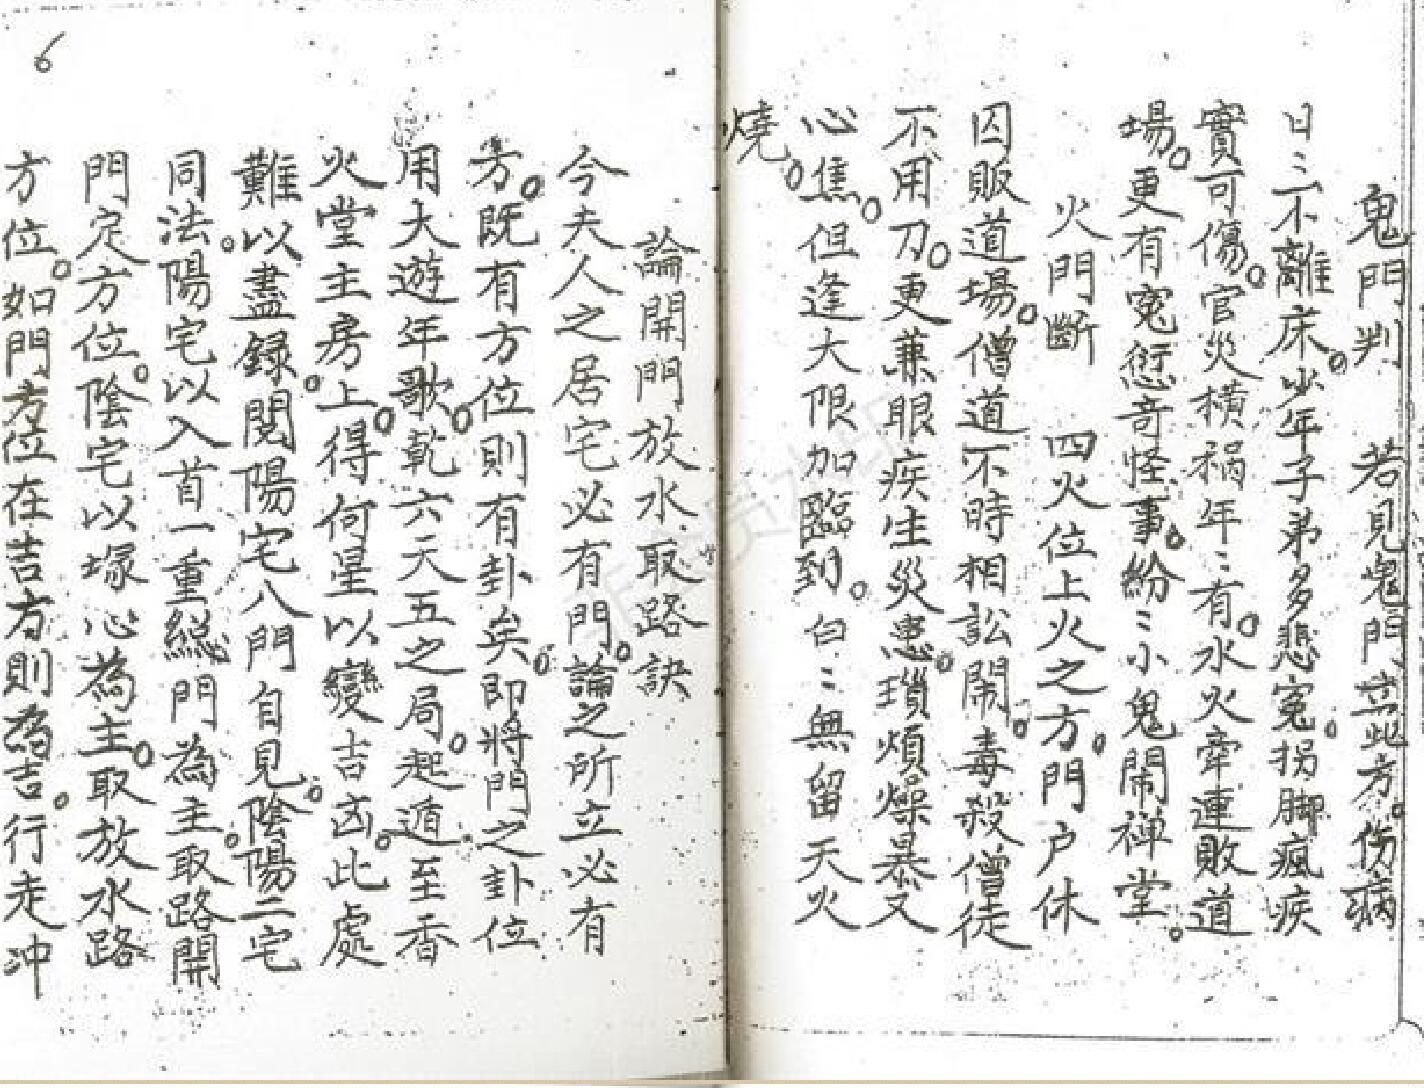 鬼門判　若見鬼門嵓此方。伤病
日〻不離床。少年子弟多悲寃。拐脚瘋疾
實可傷。官災橫禍年〻有。水火牽連敗道
場。更有寃愆奇怪事。紛〻小鬼鬧禅堂。
火門斷　四火位上火之方。門户休
囚販道場。僧道不時相訟鬧。毒殺僧徒
不用刀。更兼眼疾生災患。瑣煩燥暴又
心焦。但逢大限加臨到。白〻無留天火
燒。
論開門放水取路訣
今夫人之居宅必有門。論之所立必有
方。既有方位則有卦矣。即將門之卦位
用大遊年歌。乾六天五之局。起遁至香
火堂主房。上。得何星以變吉凶。此處
難以盡録閱陽宅八門自見。陰陽二宅
同法。陽宅以入首一重總門為主。取路開
門定方位。陰宅以塚心為主。取放水路
方位。如門方位在吉方則為吉。行走冲
6